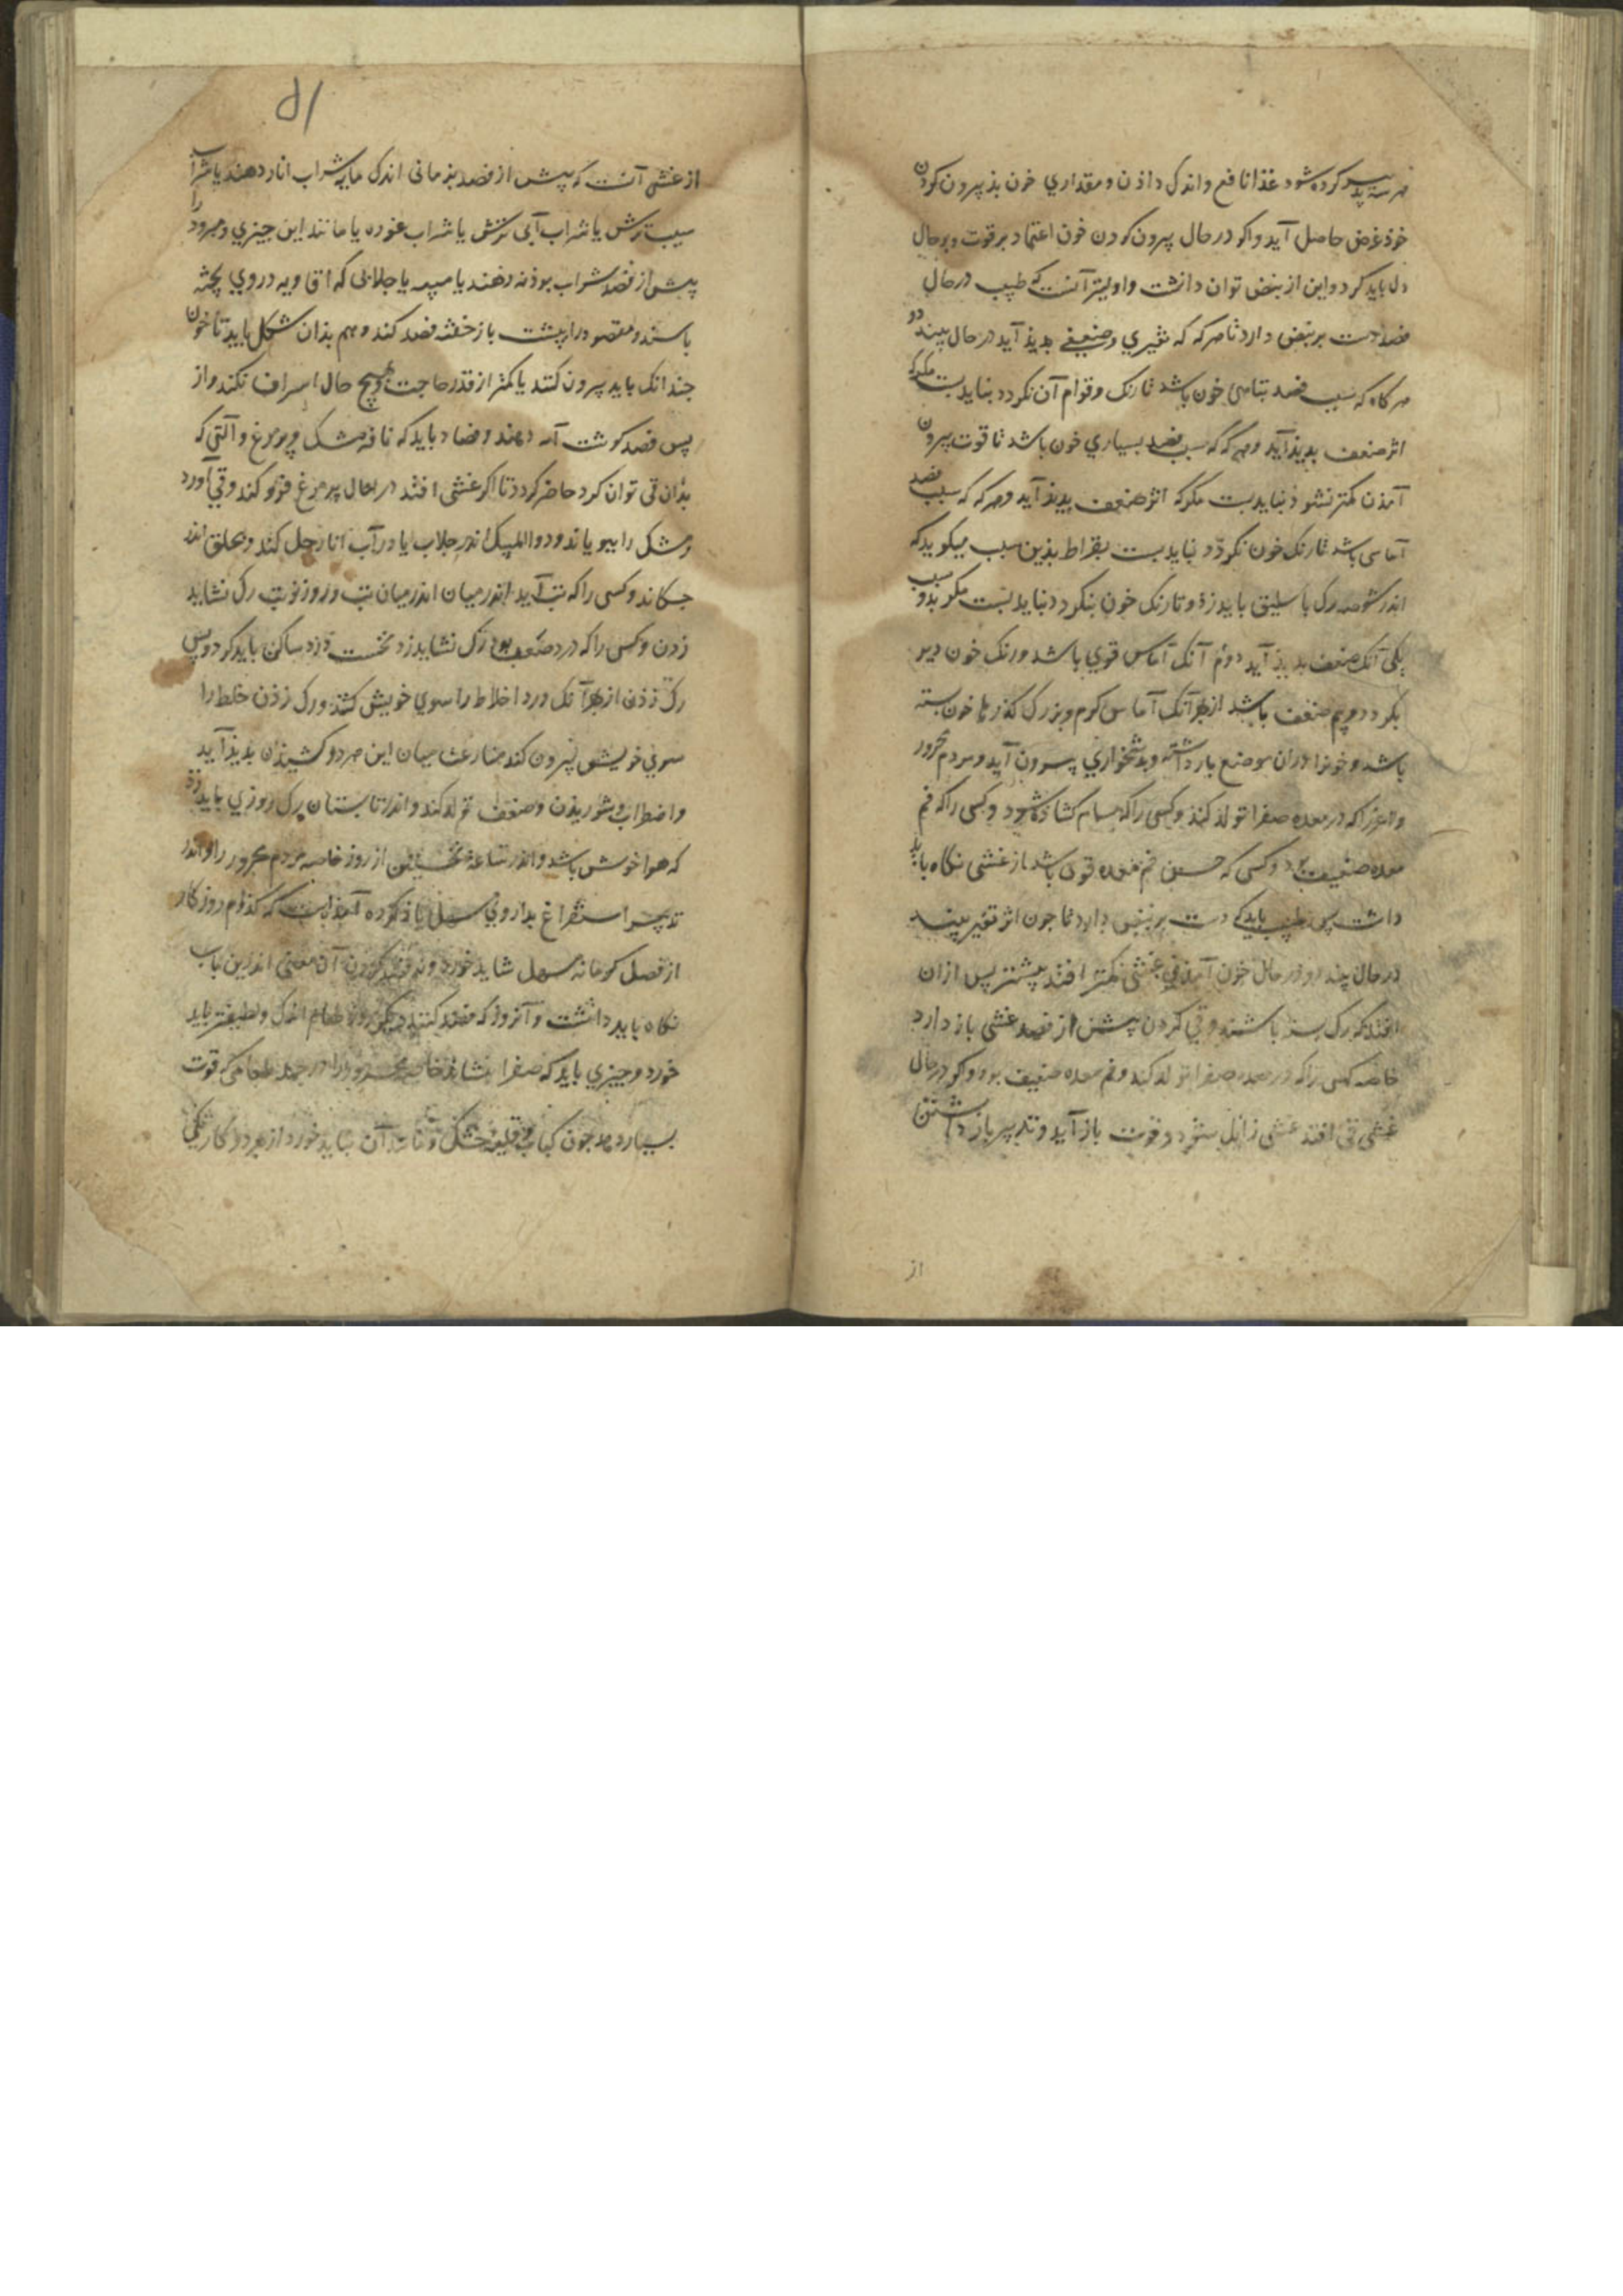 هر سه تدبیر کرده شود غذا نافع و اندک داذن و مقداری خون بذ بیرون کردن
خوذ غرض حاصل آید و اکر در حال بیرون کردن خون اعتماد بر قوت و بر حال
دل باید کرد و این از نبض توان دانست و اولیتر آنست که طبیب در حال
فصد دست بر نبض دارد تا هر که که تغیری و ضعیفی بدیذ آید در حال ببندد و
هر کاه که سبب فصد تباهی خون باشد تا رنک و قوام آن نکردد نباید بست مکر که
اثر ضعف بدیذ آید و هر که که سبب فصد بسیاری خون باشد تا قوت بیرون
آمذن کمتر نشوذ نباید بست مکر که اثر ضعف بدیذ آید و هر که که سبب فصد
آماسی باشد تا رنک خون نکردد نباید بست بقراط بذین سبب میکوید که
اندر شوصه رک باسلیق باید زد و تا رنک خون بنکردد نباید بست مکر بدو سبب
یکی آنک ضعف بدیذ آید دوم آنک آماس قوی باشد و رنک خون دیر
بکردد و بیم ضعف باشد از بهر آنک آماس کرم و بزرک کذرها خون بسته
باشد و خون را در آن موضع بازداشته و بدشخواری بیرون آید و مردم محرور
و لاغر را که در معده صفرا تولد کند و کسی را که مسام کشاذه شود و کسی را که فم
معده ضعیف بود و کسی که حس فم معده قوی باشد از غشی نکاه باید
داشت بس طبیب باید که دست بر نبض دارد تا جون اثر تغیر بیند
در حال ببندد و در حال خون آمدن غشی کمتر افتد بیشتر بس از آن
افتد که رک بسته باشند و قی کردن پیش از فصد غشی باز دارد
خاصه کسی را که در معده صفرا تولد کند و فم معده ضعیف بود و اکر در حال
غشی قی افتد غشی زایل شود و قوت باز آید و تدبیر باز داشتن
از
۵۱
از غشی آنست که پیش از فصد بزمانی اندک مایه شراب انار دهند یا شراب
سیب ترش یا شراب آبی ترش یا شراب غوره یا مانند این جیزی و مبرود را
پیش از فصد شراب بوذنه دهند یا میبه یا جلابی که افاویه در وی پخته
باشند و مقصود را بپشت باز خفته فصد کنند و هم بذان شکل باید تا خون
جندانک باید بیرون کنند یا کمتر از قدر حاجت و بهیج حال اسراف نکند و از
پس فصد کوشت آبه دهند و فصاد باید که نافه مشک و پر مرغ و آلتی که
بذان قی توان کرد حاضر کردد تا اکر غشی افتد در حال پر مرغ فرو کند و قی آورد
و مشک را ببویاند و دوا المسک اندر جلاب یا در آب انار حل کند و بحلق اندر
جکاند و کسی را که تب آید اندر میان اندر میان تب و روز نوبت رک نشاید
زدن و کسی را که درد صعب بود رک نشاید زد نخست درد ساکن باید کرد و پس
رک زذن از بهر آنک درد اخلاط را سوی خویش کشد و رک زذن خلط را
سوی خویش بیرون کند منازعت میان این هر دو کشیدن بدیذ آید
و اضطراب و شوریذن و ضعف تولد کند و اندر تابستان رک روزی باید زد
که هوا خوش باشد و اندر ساعة نخستین از روز خاصه مردم محرور را و اندر
تدبیر استفراغ بداروی مسهل یاذ کرده آمذ است که کذام روزکار
از فصل کرما نه مسهل شاید خورد و نه فصد کردن آن معنی اندرین باب
نکاه باید داشت و آن روز که فصد کنند دیکر روز طعام اندک و لطیفتر باید
خورد و جیزی باید که صفرا بنشاند خاصه محرور را و از جمله طعامی که قوت
بسیار دهد جون کباب و قلیه خشک و مانند آن نباید خورد از بهر دو کار یکی